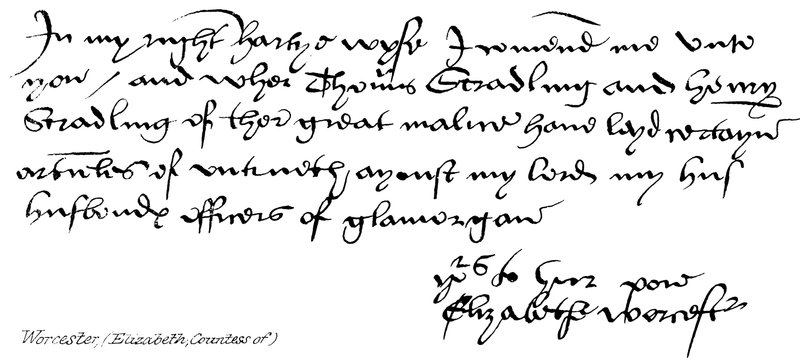 In my right hartye wyse I comend me unto
you / and wher Thomas Stradling and henry
Stradling of ther great malice have layd certayn
articles of untrueth ayenst my lord my
husbondes officers of glamorgan
yrs to her pore
Elizabeth Worcester
Worcester, (Elizabeth, Countess of)